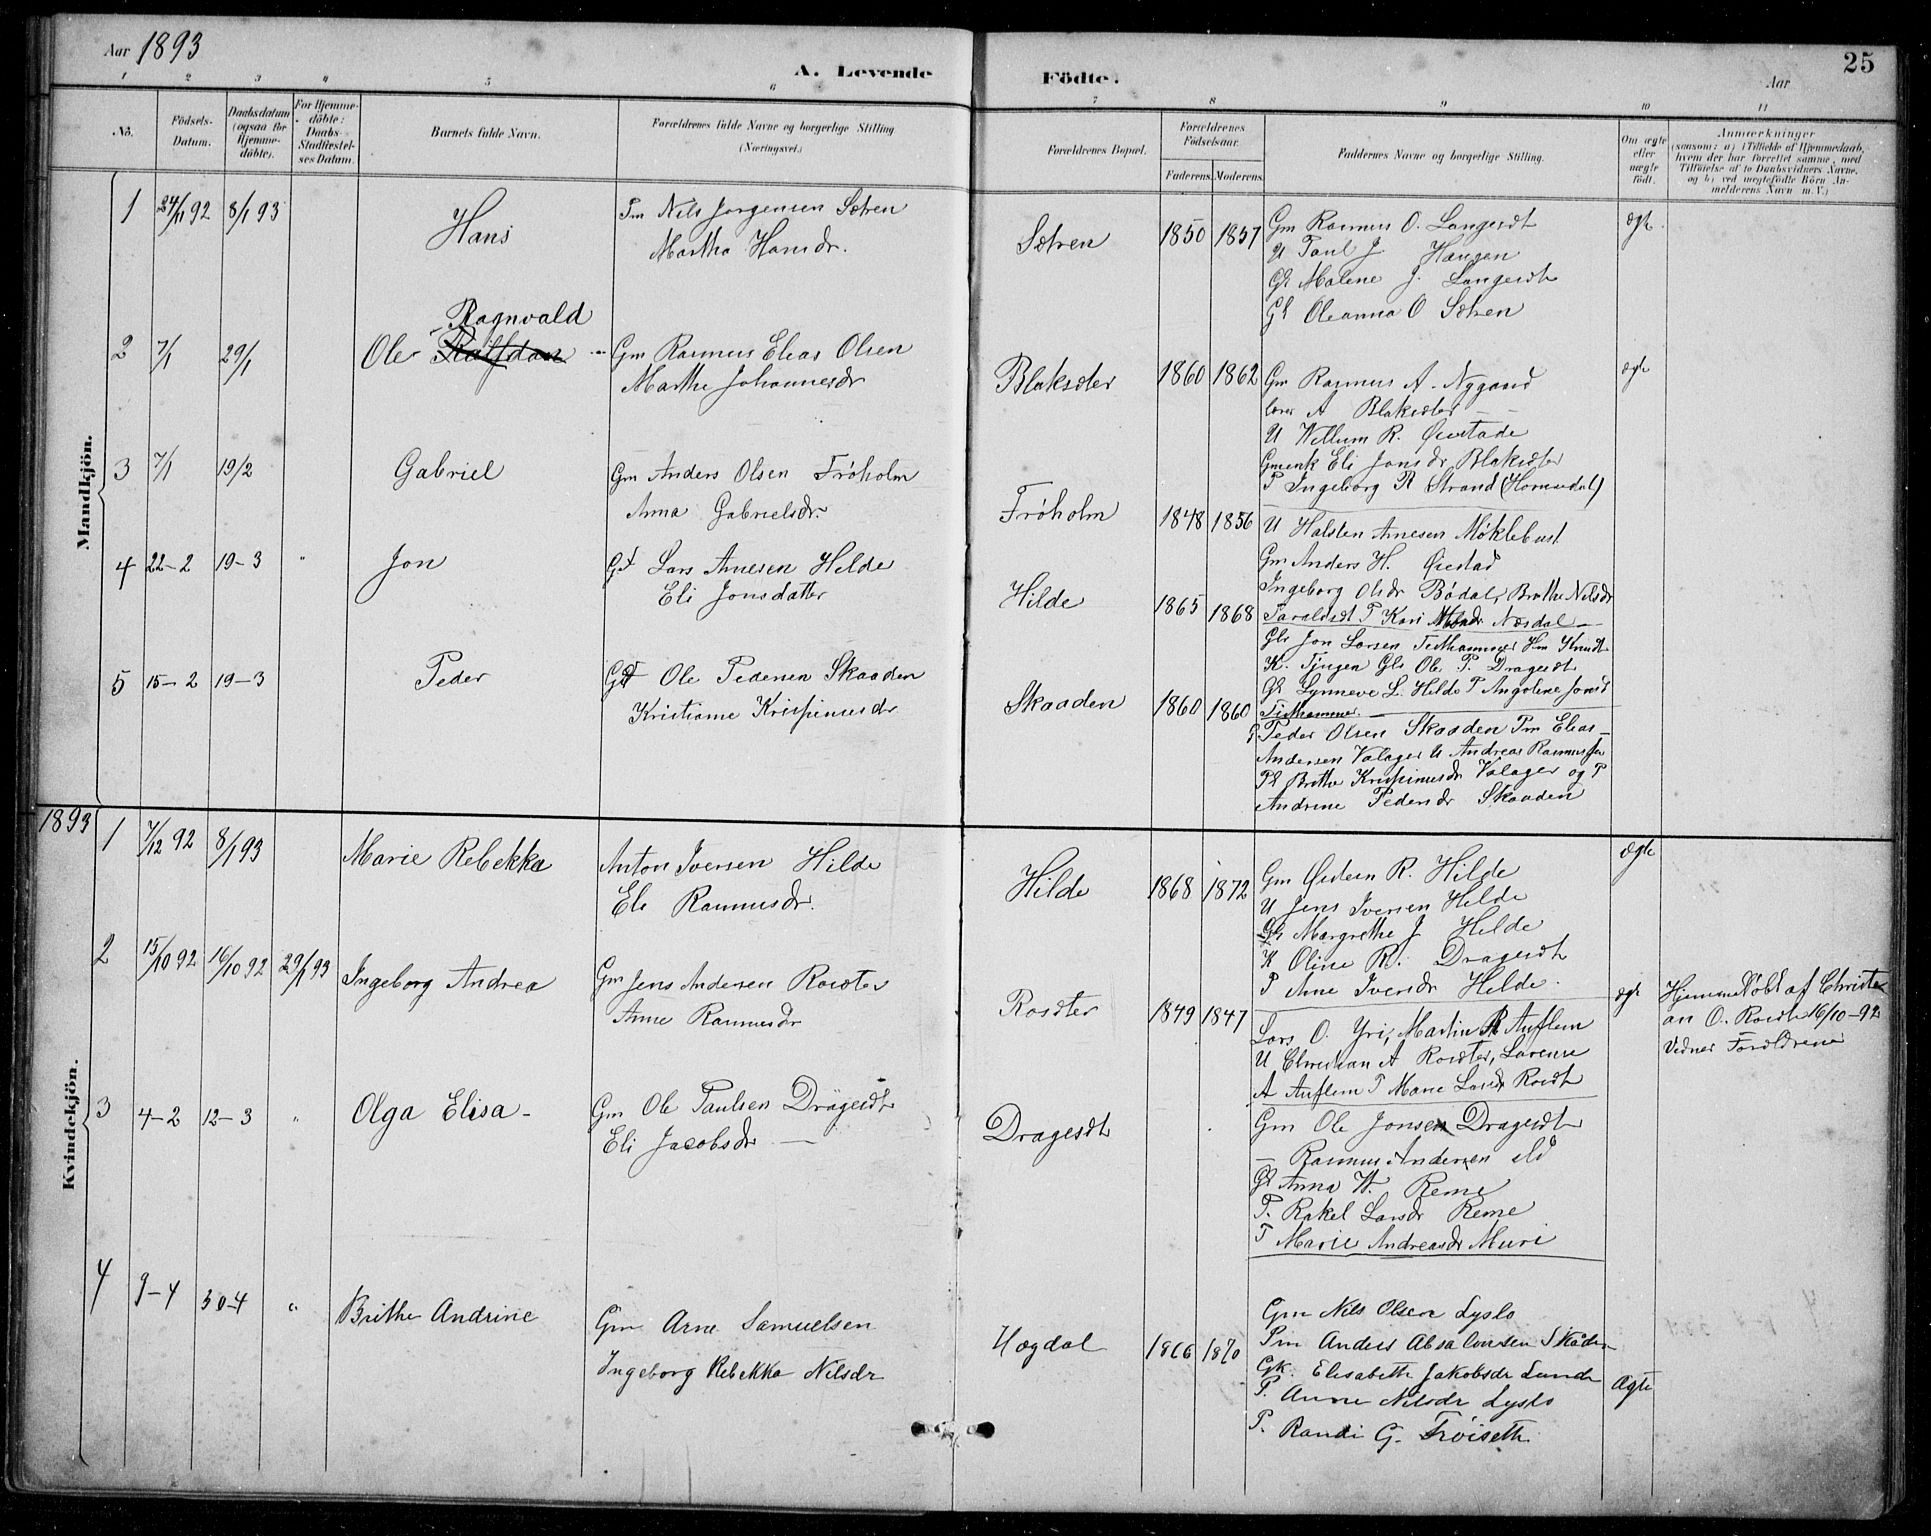 Aar 1893
A. Levende Födte.
Aar
25
1 2 3 4 5 6 7 8 9 10 11
No.
Födsels-Datum.
Daabsdatum (ogsaa for Hjemme-döbte).
For Hjemme-döbte: Daabs-Stadfæstel-ses Datum.
Barnets fulde Navn.
Forældrenes fulde Navne og borgerlige Stilling (Næringsvei.)
Forældrenes Bopæl.
Forældrenes Födselsaar.
Faderens. Moderens.
Faddernes Navne og borgerlige Stilling.
Om ægte eller uægte födt.
Anmærkninger
(saasom: a) i Tilfælde af Hjemmedaab, hvem der har forrettet samme, med Tilföielse af to Daabsvidners Navne, og b) ved uægtefödte Börn An-melderens Navn m. V.)
Mandkjön.
1 24/11 92 8/1 93 Hans
Pm Nils Jørgensen Sætren
Martha Hansdr.
Sætren 1850 1857
Gm Rasmus O. Langesæt
U Paul J Haugen
Gk Malene J. Langesæt
Gk Oleanna O Sætren
ægt.
2 7/1 29/1
Ragnvald
Ole Halfdan
Gm Rasmus Elias Olsen
Marthe Johannesdr
Blaksæter 1860 1862
Gm Rasmus A. Nygaard
lærer A Blaksæter
U Willum R. Øvstade
Gmenk Eli Jonsdr Blaksæter
P Ingeborg R Strand (Hornindal)
ægt
3 7/1 19/2 Gabriel
Gm Anders Olsen Frøholm
Anna Gabrielsdr.
Frøholm 1848 1856
U Halsten Arnesen Møklebust
Gm Anders H. Øvstad
Ingeborg Olsdr Bødal, Brithe Nilsdr
Taraldset P Kari Monsdr Næsdal
4 22-2 19-3 " Jon
Lars Arnesen Hilde
Eli Jonsdatter
Hilde 1865 1868
Gk Jon Larsen Tisthammer Hm Knudt
K. Tjugen Gk Ole P. Dragesæt
Gk Synneve L. Hilde P Angolene Jonsd
Tisthammer.
5 15-2 19-3 Peder
Ole Pedersen Skaaden
Kristiane Krispinusdr
Skaaden 1860 1860
Peder Olsen Skaaden Pm Elias
Andersen Valager U Andreas Rasmus
Pk Brithe Krispinusdr Valager og P
Andrine Pedersdr Skaaden
1893
Kvindekjön.
1 7/12 92 8/1 93 Marie Rebekka
Anton Iversen Hilde
Eli Rasmusdr.
Hilde 1868 1872
Gm Østen R. Hilde
U Jens Iversen Hilde
Gk Margrethe J Hilde
K Oline R. Dragesæt
P Ane Iversdr Hilde.
ægte
2 15/10 92 16/10 92 29/1 93 Ingeborg Andrea
Gm Jens Andersen Rosæter
Anne Rasmusdr
Rosæter 1849 1847
Lars O. Yri, Martin R Auflem
U Christian A Rosæter, Lorense
A Auflem P Marie Larsdr Rosæt
ægt
Hjemmedøbt af Christi
an O. Rosæt 16/10-92
Vidner Forældrene
3 4-2 12-3 " Olga Elisa
Gm Ole Paulsen Dragesæt
Eli Jacobsdr
Dragesæt
Gm Ole Jonsen Dragesæt
Rasmus Andersen
Gk Anna W. Reme
P. Rakel Larsdr Reme
P Marie Andreasdr Muri
4 9-4 30-4 " Brithe Andrine
Gm Arne Samuelsen
Ingeborg Rebekka Nilsdr
Hægdal 1866 1870
Gm Nils Olsen Lyslo
Pm Anders Absalonsen Skåden
Gk. Elisabeth Jakobsdr Lunde
P. Anne Nilsdr Lyslo
P. Randi G. Frøiseth
Ægte